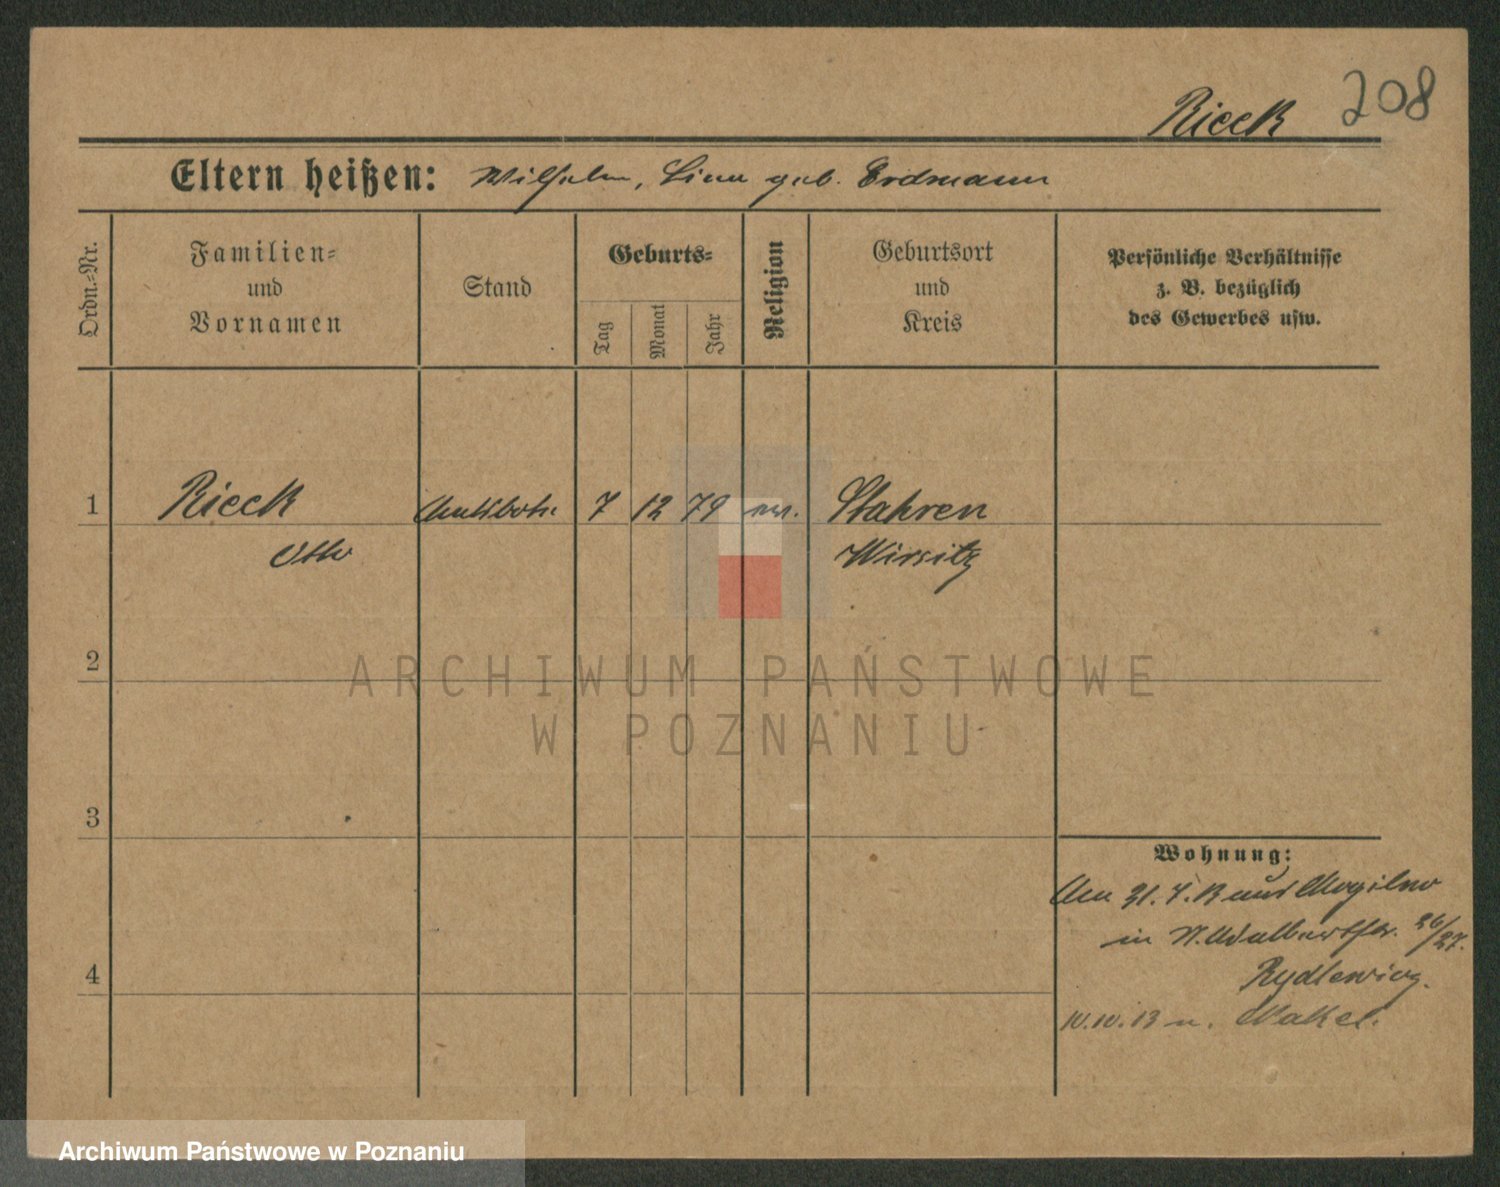 Rieck 208
Eltern heißen: Wilhelm, Lina geb. Erdmann
Ordn.-Nr.
Familien-
und
Vornamen
Stand
Geburts-
Tag
Monat
Jahr
Religion
Geburtsort
und
Kreis
Persönliche Verhältnisse
z. B. bezüglich
des Gewerbes usw.
1 Rieck 7 12 79 Stahren
Otto Wirsitz
2
ARCHIWUM PAŃSTWOWE
W POZNANIU
3
Wohnung:
Am 31. 7. 13 aus Mogilno
in 26/27.
4
10.10.13 n. Nakel.
Archiwum Państwowe w Poznaniu